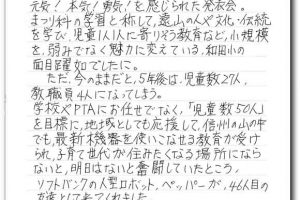 元気！本気！勇気！を感じられた発表会。
まつり科の学習と称して、遠山の人や文化・伝統
を学び、児童1人1人に寄りそう教育など、小規模
を、弱みでなく魅力に変えている、和田小の
面目躍如でした。
ただ、今のままだと、5年後は、児童数27人、
教職員4人になってしまう。
学校やPTAにお任せでなく、「児童数50人」
を目標に、地域としても応援して、信州の山の中
でも、最新機器を使いこなせる教育が受け
られ、子育て世代が住みたくなる場所になら
ないと、明日はないと奮闘していたところ、
ソフトバンクの人型ロボット、ペッパーが、46人目の
友達として来てくれました